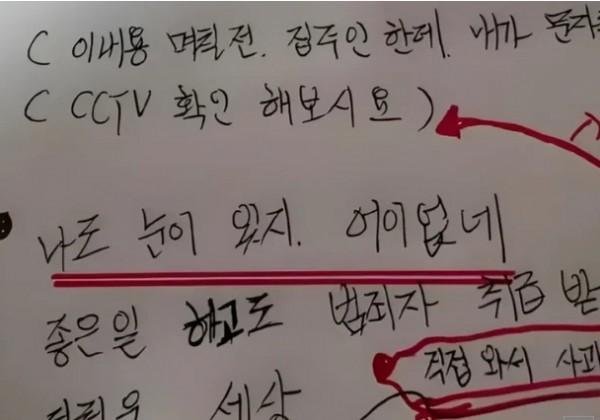 ( 이내용 며칠전. 집주인 한테. 내가 문자
( CCTV 확인 해보시요 )
나도 눈이 있지. 어이없네
좋은일 하고도 범죄자 취급 받
직접 와서 사과
세상